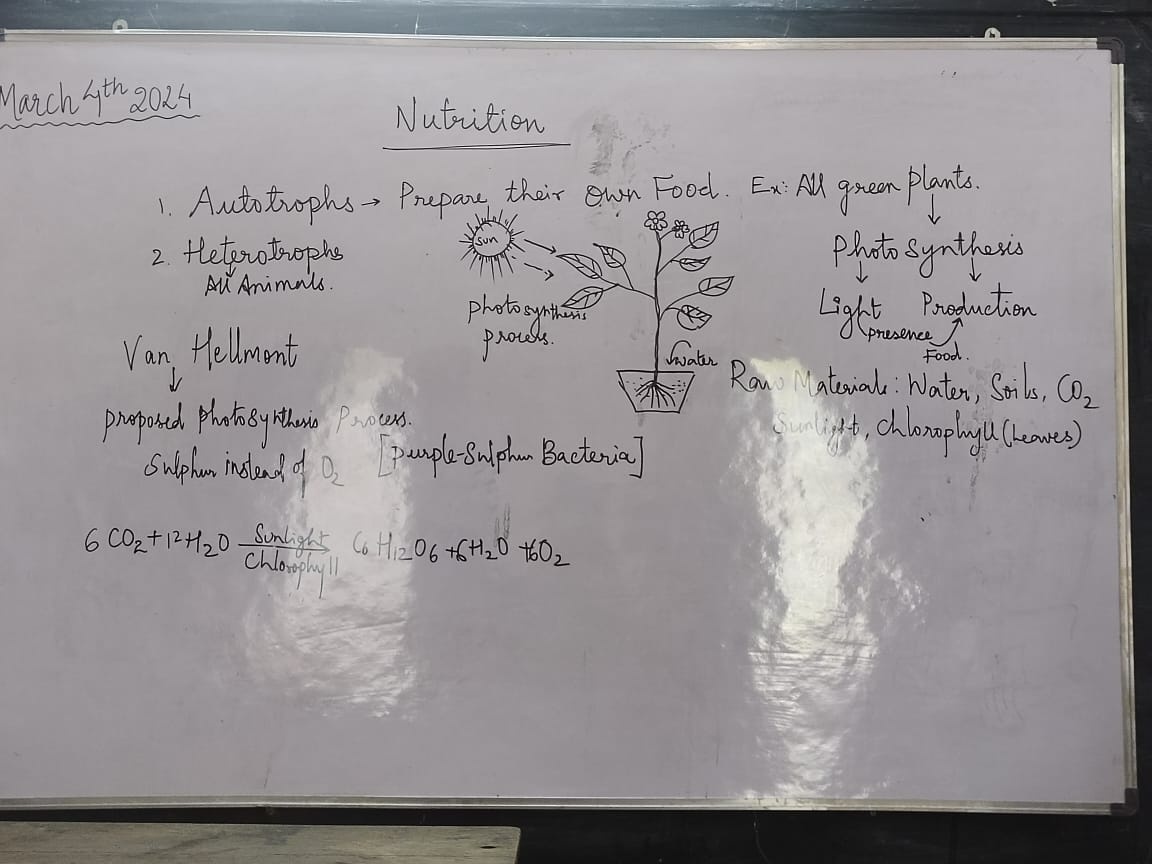 March 4th 2024
Nutrition
1. Autotrophs → Prepare their own Food. Ex: All green plants.
↓
Photo synthesis
↓ ↓
Light Production
presence
Food.
2. Heterotrophs
↓
All Animals.
Sun
photosynthesis
process.
water
Raw Materials: Water, Soils, CO2
Sunlight, chlorophyll (Leaves)
Van Hellmont
↓
proposed photosynthesis Process.
Sulphur instead of O2 [Purple-Sulphur Bacteria]
6 CO2 + 12 H2O Sunlight → Chlorophyll C6 H12 O6 + 6H2O + 6O2